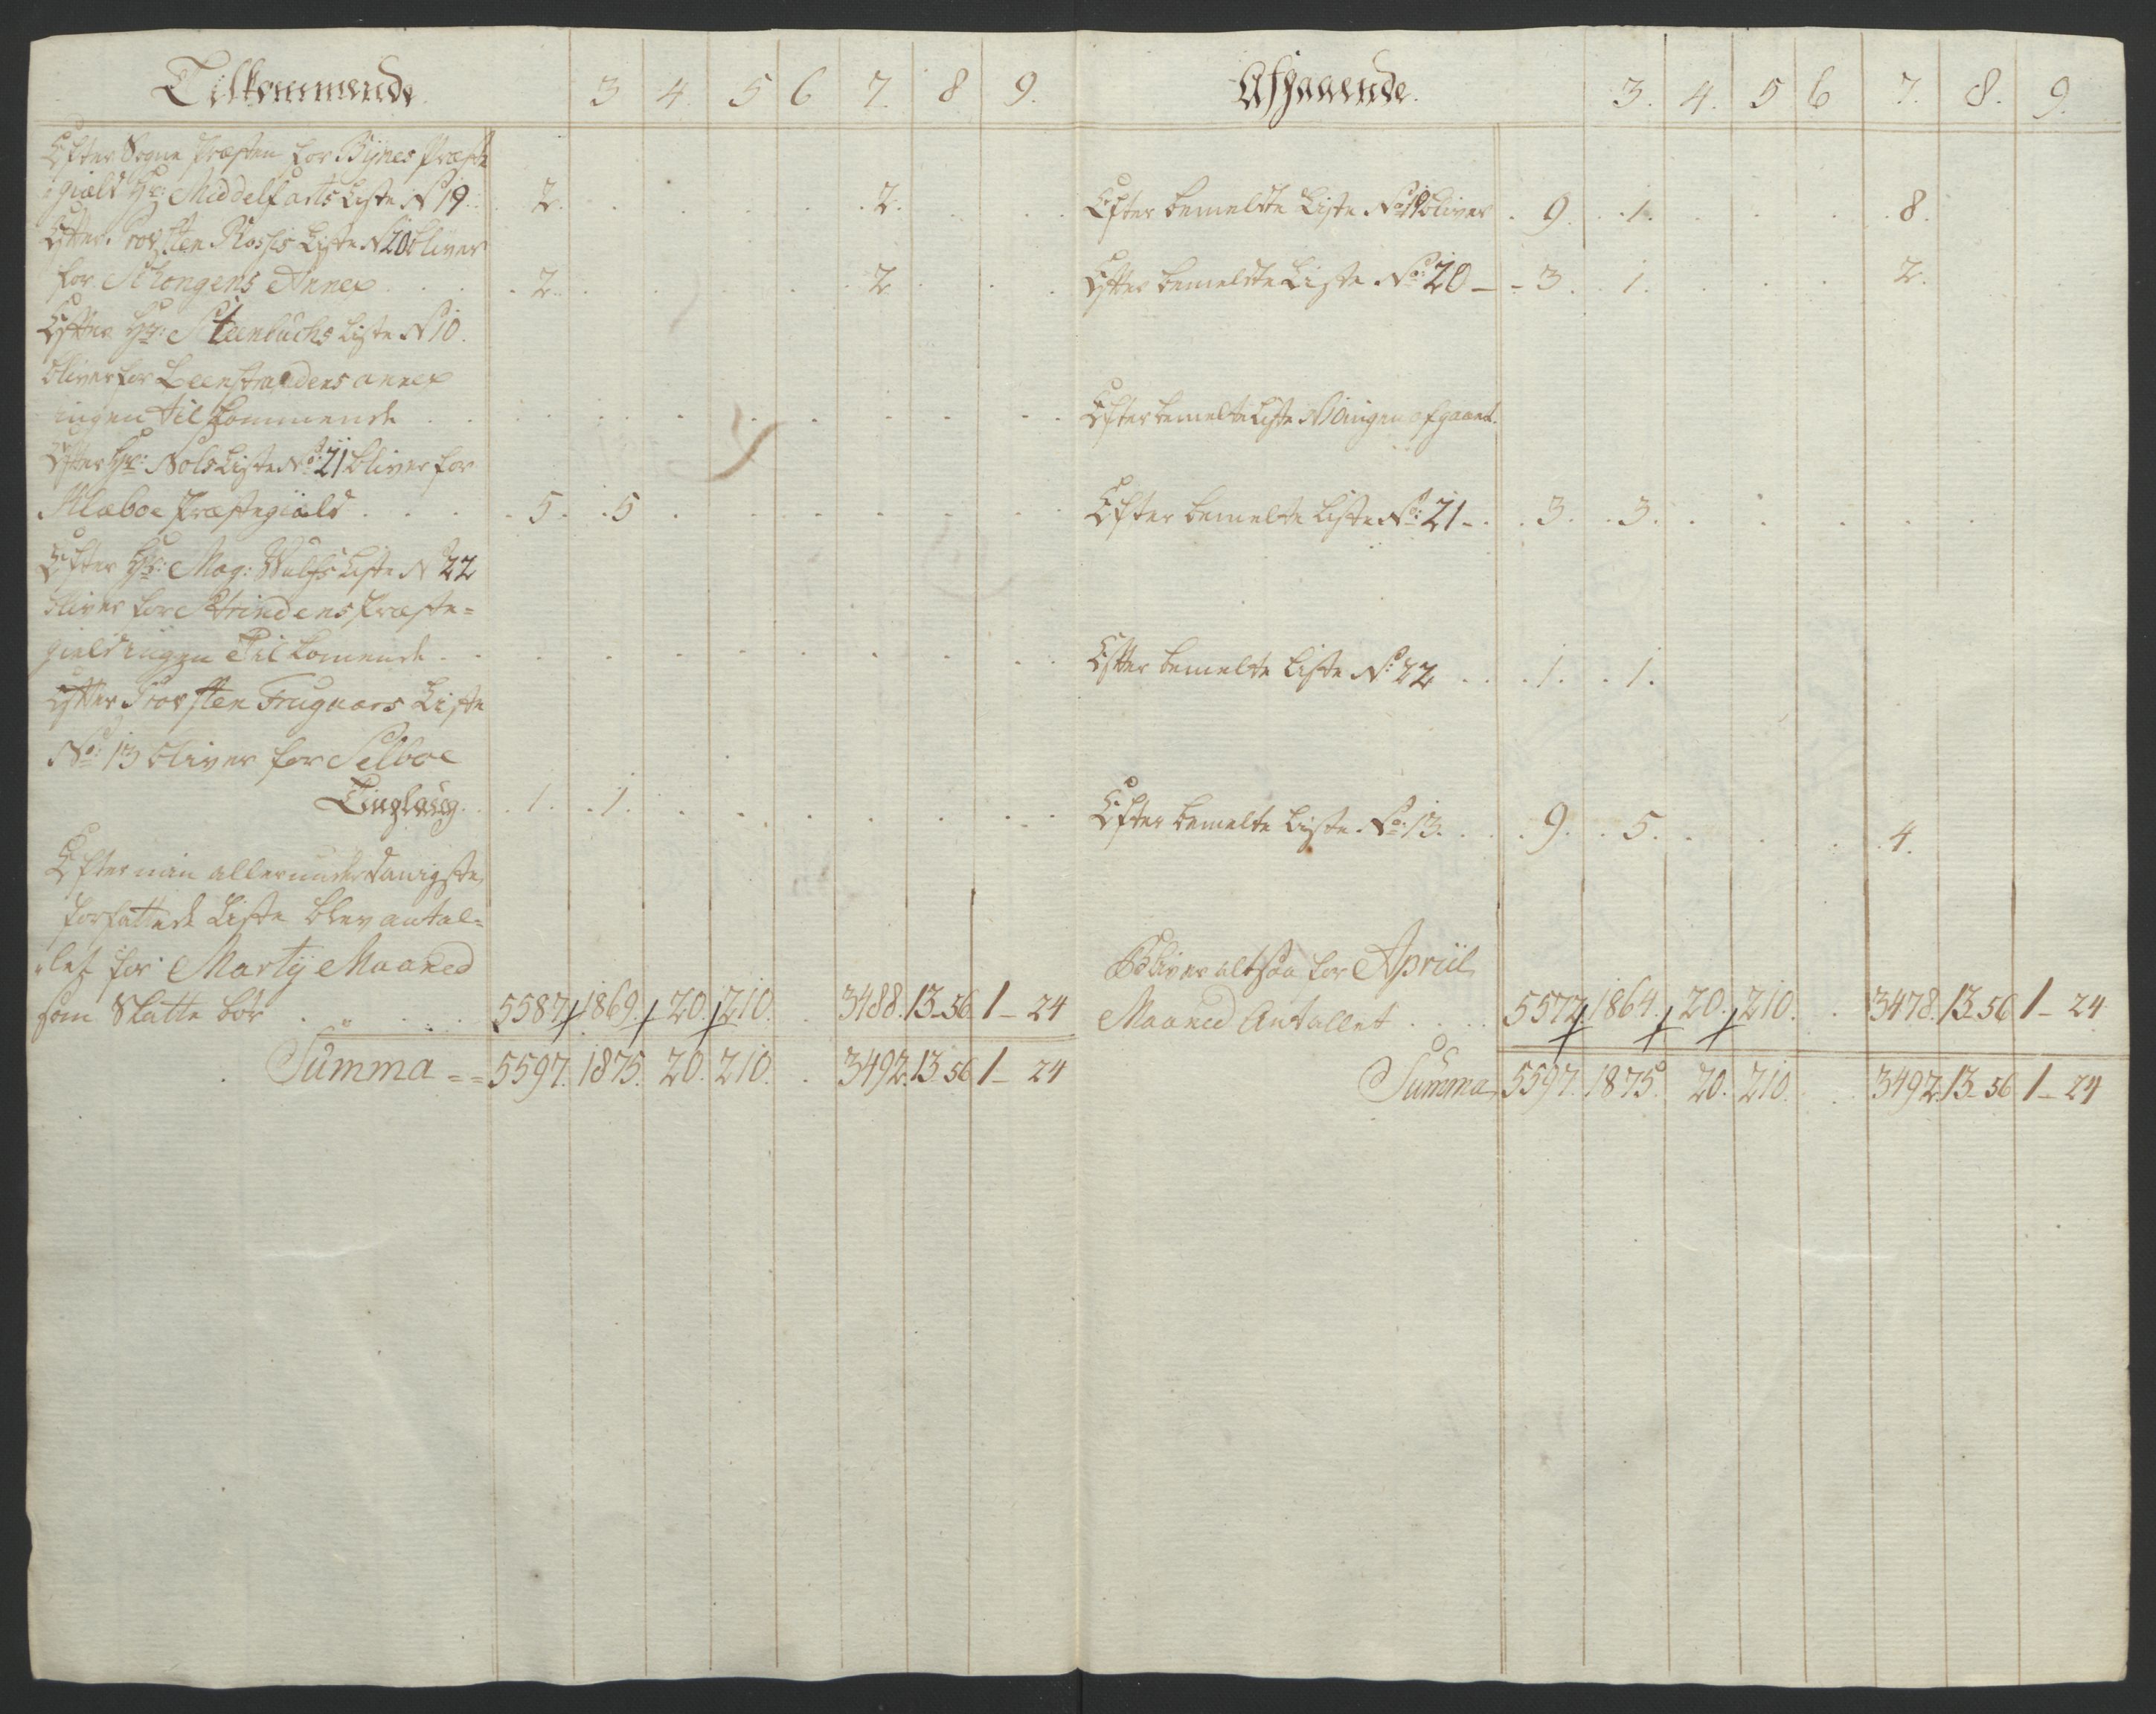 Tilkommende. 3 4. 5 6 7. 8 9.
Efter Sogne Præsten for Bÿnes Præste
giæld Hr: Middelfarts Liste N 19. . 2. . . . . . 2. . . .
Efter Provsten Rossis Liste N 20 bliver
for Schongens Annex . . . . 2. . . . . 2. . . .
Efter Hr: Steenbuchs Liste N 10.
bliver for Leenstrandens annex
ingen tilkommende . . . . . . . . . . .
Efter Hr: Nols Liste No: 21 bliver for
Klæboe Præstegiæld . . . . 5. . 5 . . . . . . .
Efter Hr: Mag: Wulfs Liste N 22
bliver for Strindens Præste=
gield ingen Tilkomende . . . . . . . . . . .
Efter Provsten Frugaars Liste
No: 13 bliver for Selboe
Tinglaug. . . 1. . 1. . . . . . . .
Efter min allerunderdanigste
forfattede Liste blev antal=
let for Martÿ Maaned
som Skatte bör . . . . 5587. 1869. 20. 210. . 3488. 13-56 1 - 24
Summa == 5597. 1875. 20. 210. . 3492. 13. 56 1 - 24
Afgaaende. 3. 4. 5 6 7. 8. 9.
Efter bemeldte Liste No: 19 bliver . 9. . 1. . . . . 8.
Efter bemeldte Liste No: 20 - - 3. . 1. . . . 2.
Efter bemelte Liste N 10 ingen afgaaend.
Efter bemelte Liste No: 21 - . . 3. . 3. . . . . . .
Efter bemelte Liste No: 22 . . . 1. . 1.
Efter bemelte Liste No: 13. . . . 9. . 5. . . . . 4.
Bliver altsaa for Apriil
Maaned Antallet . . . . 5572. 1864. 20. 210. . 3478. 13-56 1 - 24
Summa 5597. 1875. 20. 210. . . 3492. 13-56 1 - 24